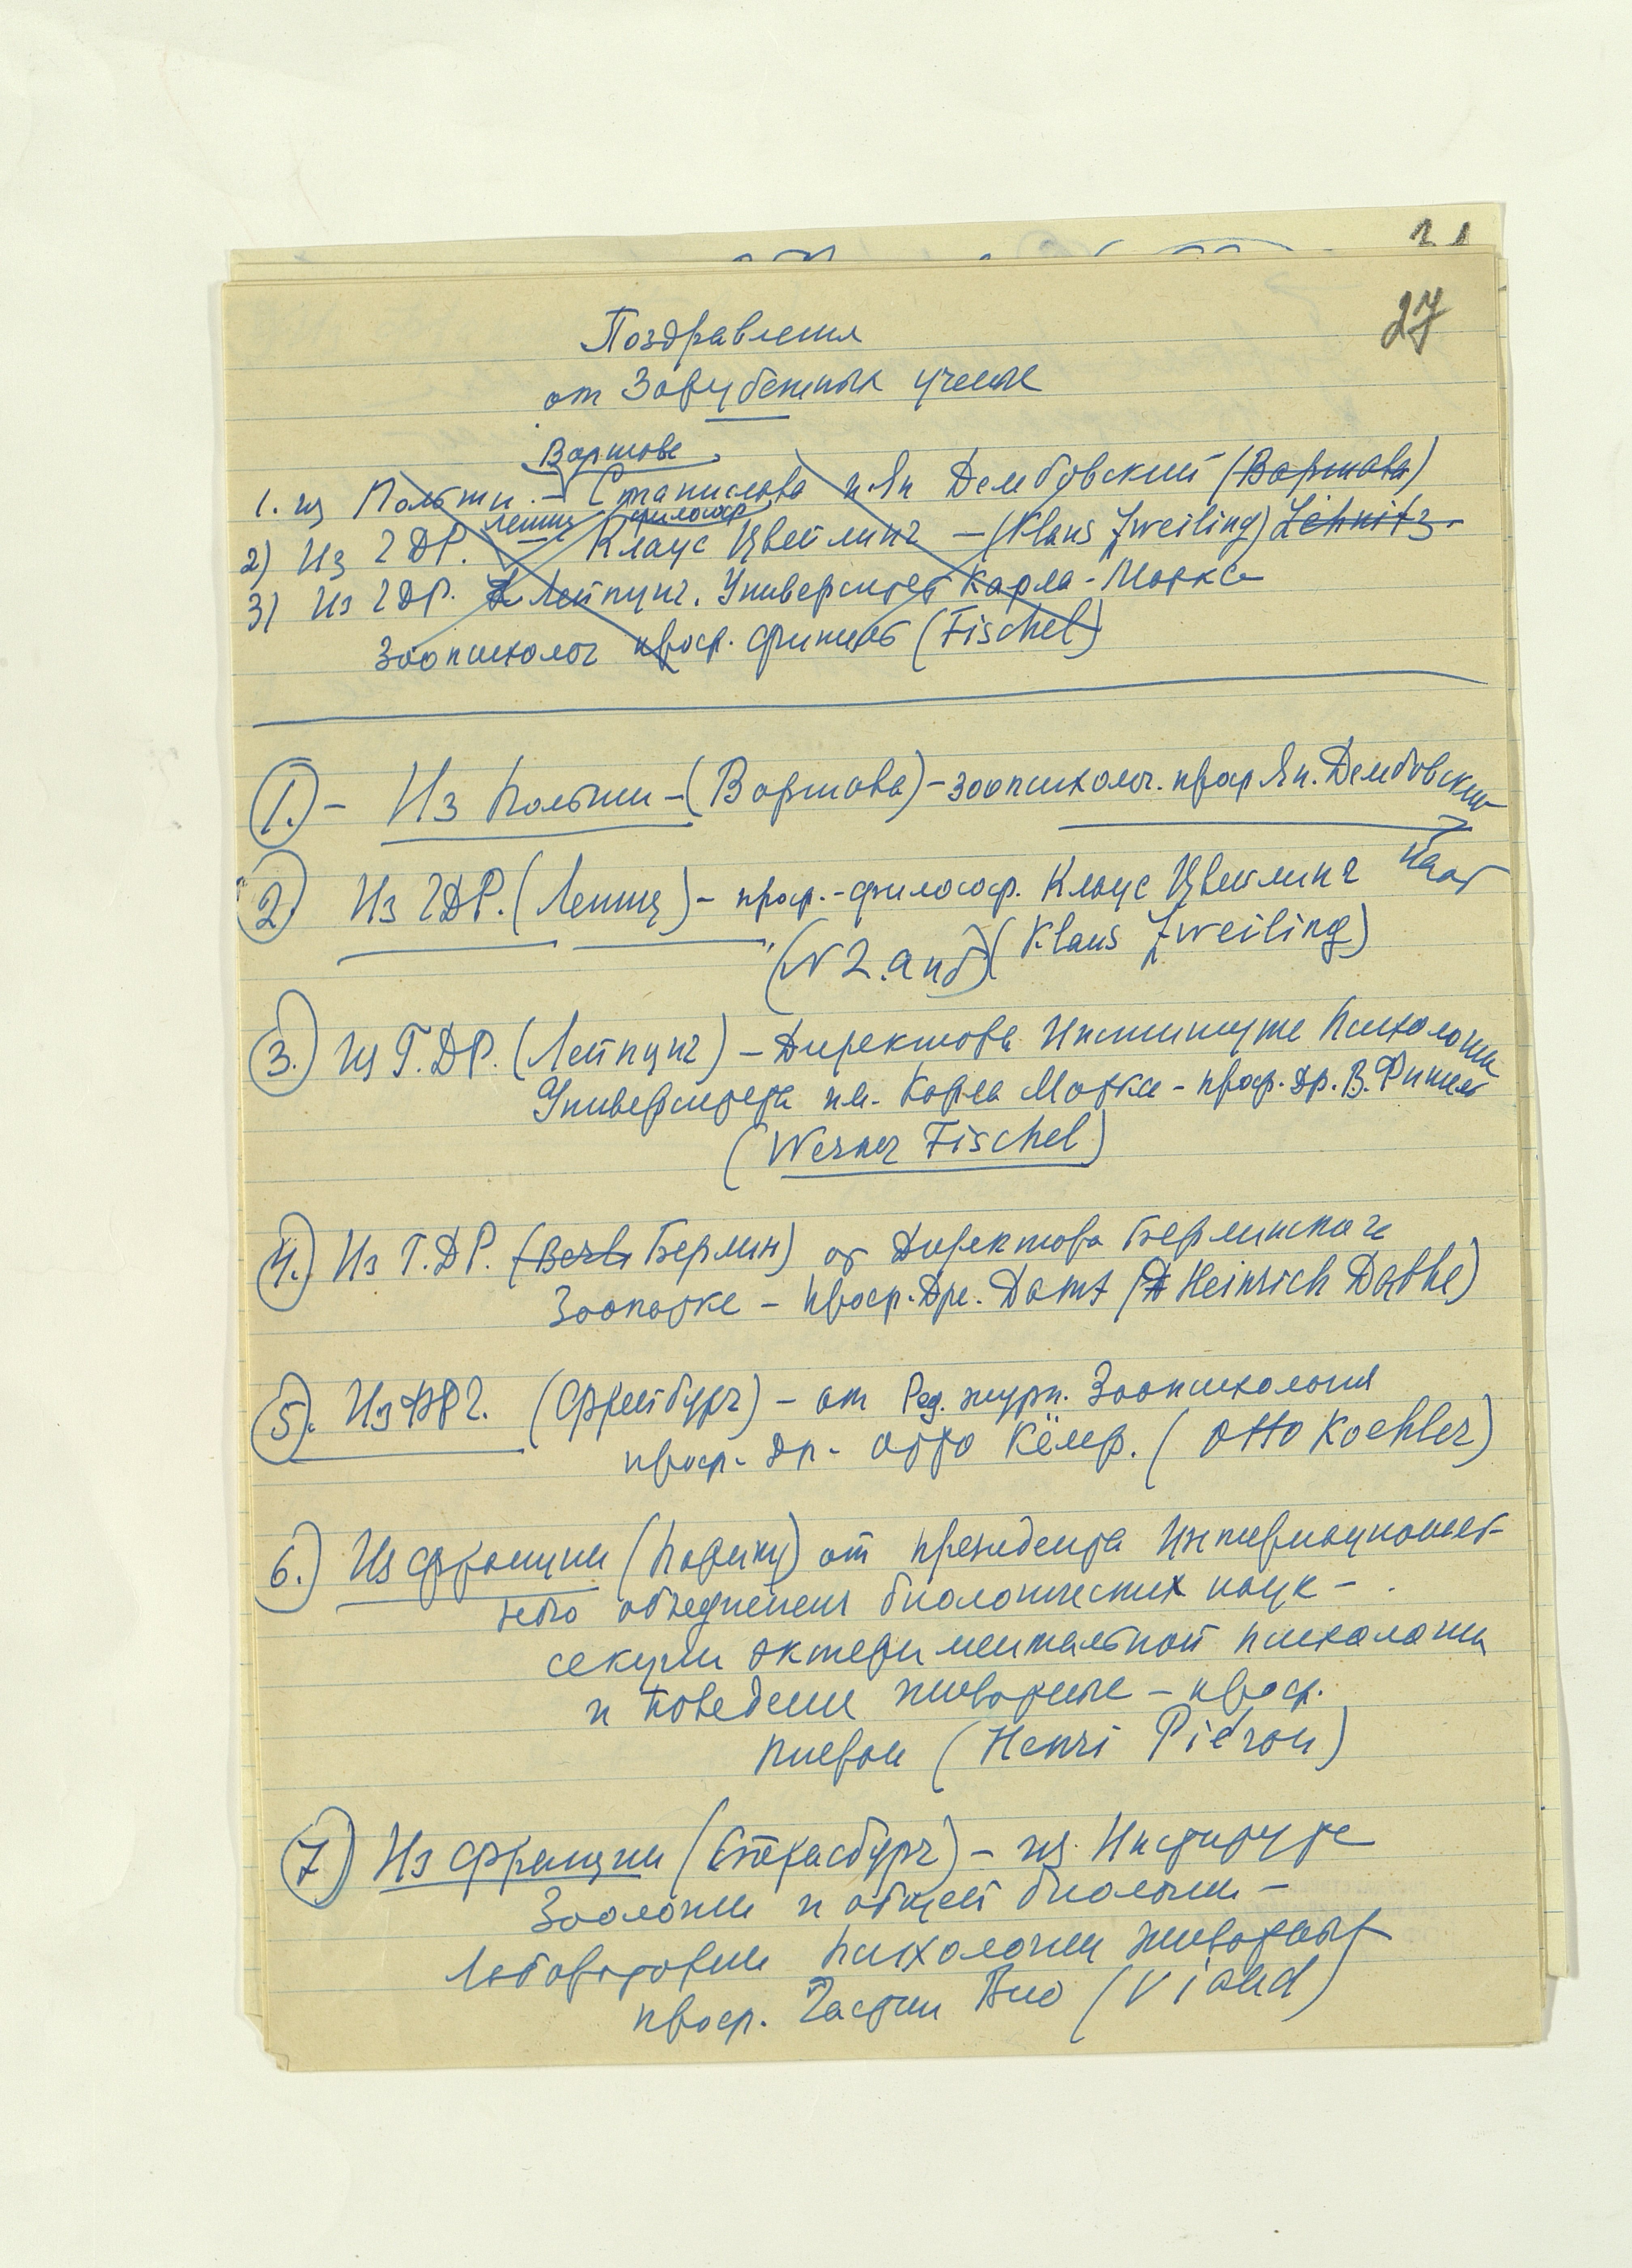 27
Поздравления
от Зарубежных ученых
Варшава
1. из Польши. – Станислава и Ян Дембовский (Варшава)
Лениц философ
2) Из ГДР. Клаус Цвейлинг – (Klaus Zweiling) Lehnitz.
3) Из ГДР. Лейпциг. Университет Карла-Маркса
Зоопсихолог проф. Фишель (Fischel)
1. – Из Польши – (Варшава) – зоопсихолог. проф Ян. Дембовский
2. Из ГДР. (Лениц) – проф.-философ. Клаус Цвейлинг
(Klaus Zweiling)
3. Из Г.ДР. (Лейпциг) – Директора Института Психологии
Университета им. Карла Маркса – проф. Др. В. Фишель
(Werner Fischel)
4. Из Г.ДР. (Berli Берлин) от Директора Берлинского
Зоопарка – проф. Дра. Датт (D Heinrich Dathe)
5. Из ФРГ. (Фрейбург) – от Ред. журн. Зоопсихология
проф. Др. Отто Кёлер. (Otto Koehler)
6.) Из Франции (Париж) от президента Интернациональ-
ного объединения биологических наук –
секции экспериментальной психологии
и поведения животных – проф.
Пьерон (Henri Piéron)
7) Из Франции (Страсбург) – из Института
Зоологии и общей биологии –
Лаборатории психологии животных
проф. Гастон Вио (Viaud)